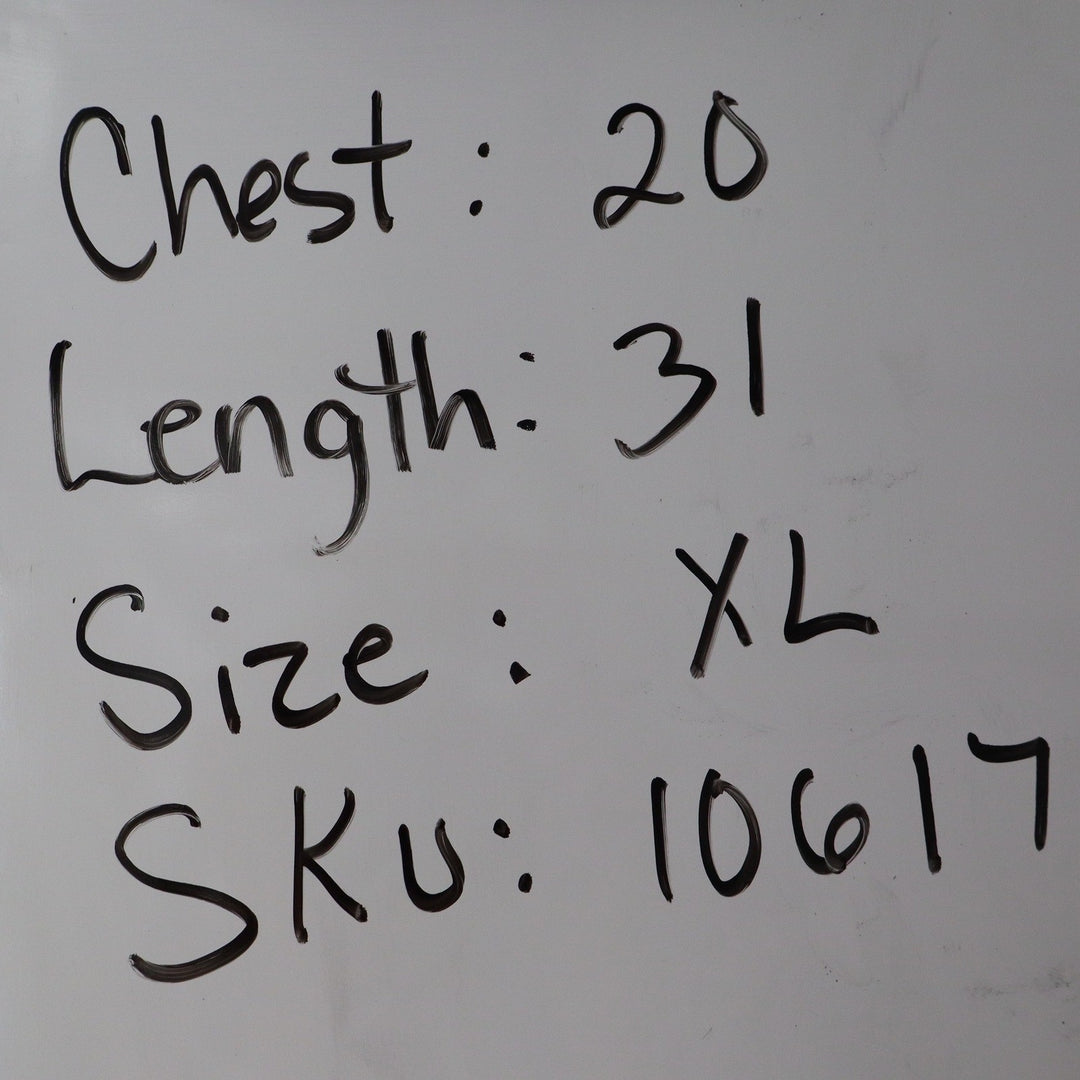 Chest: 20
Length: 31
Size: XL
SKU: 10617